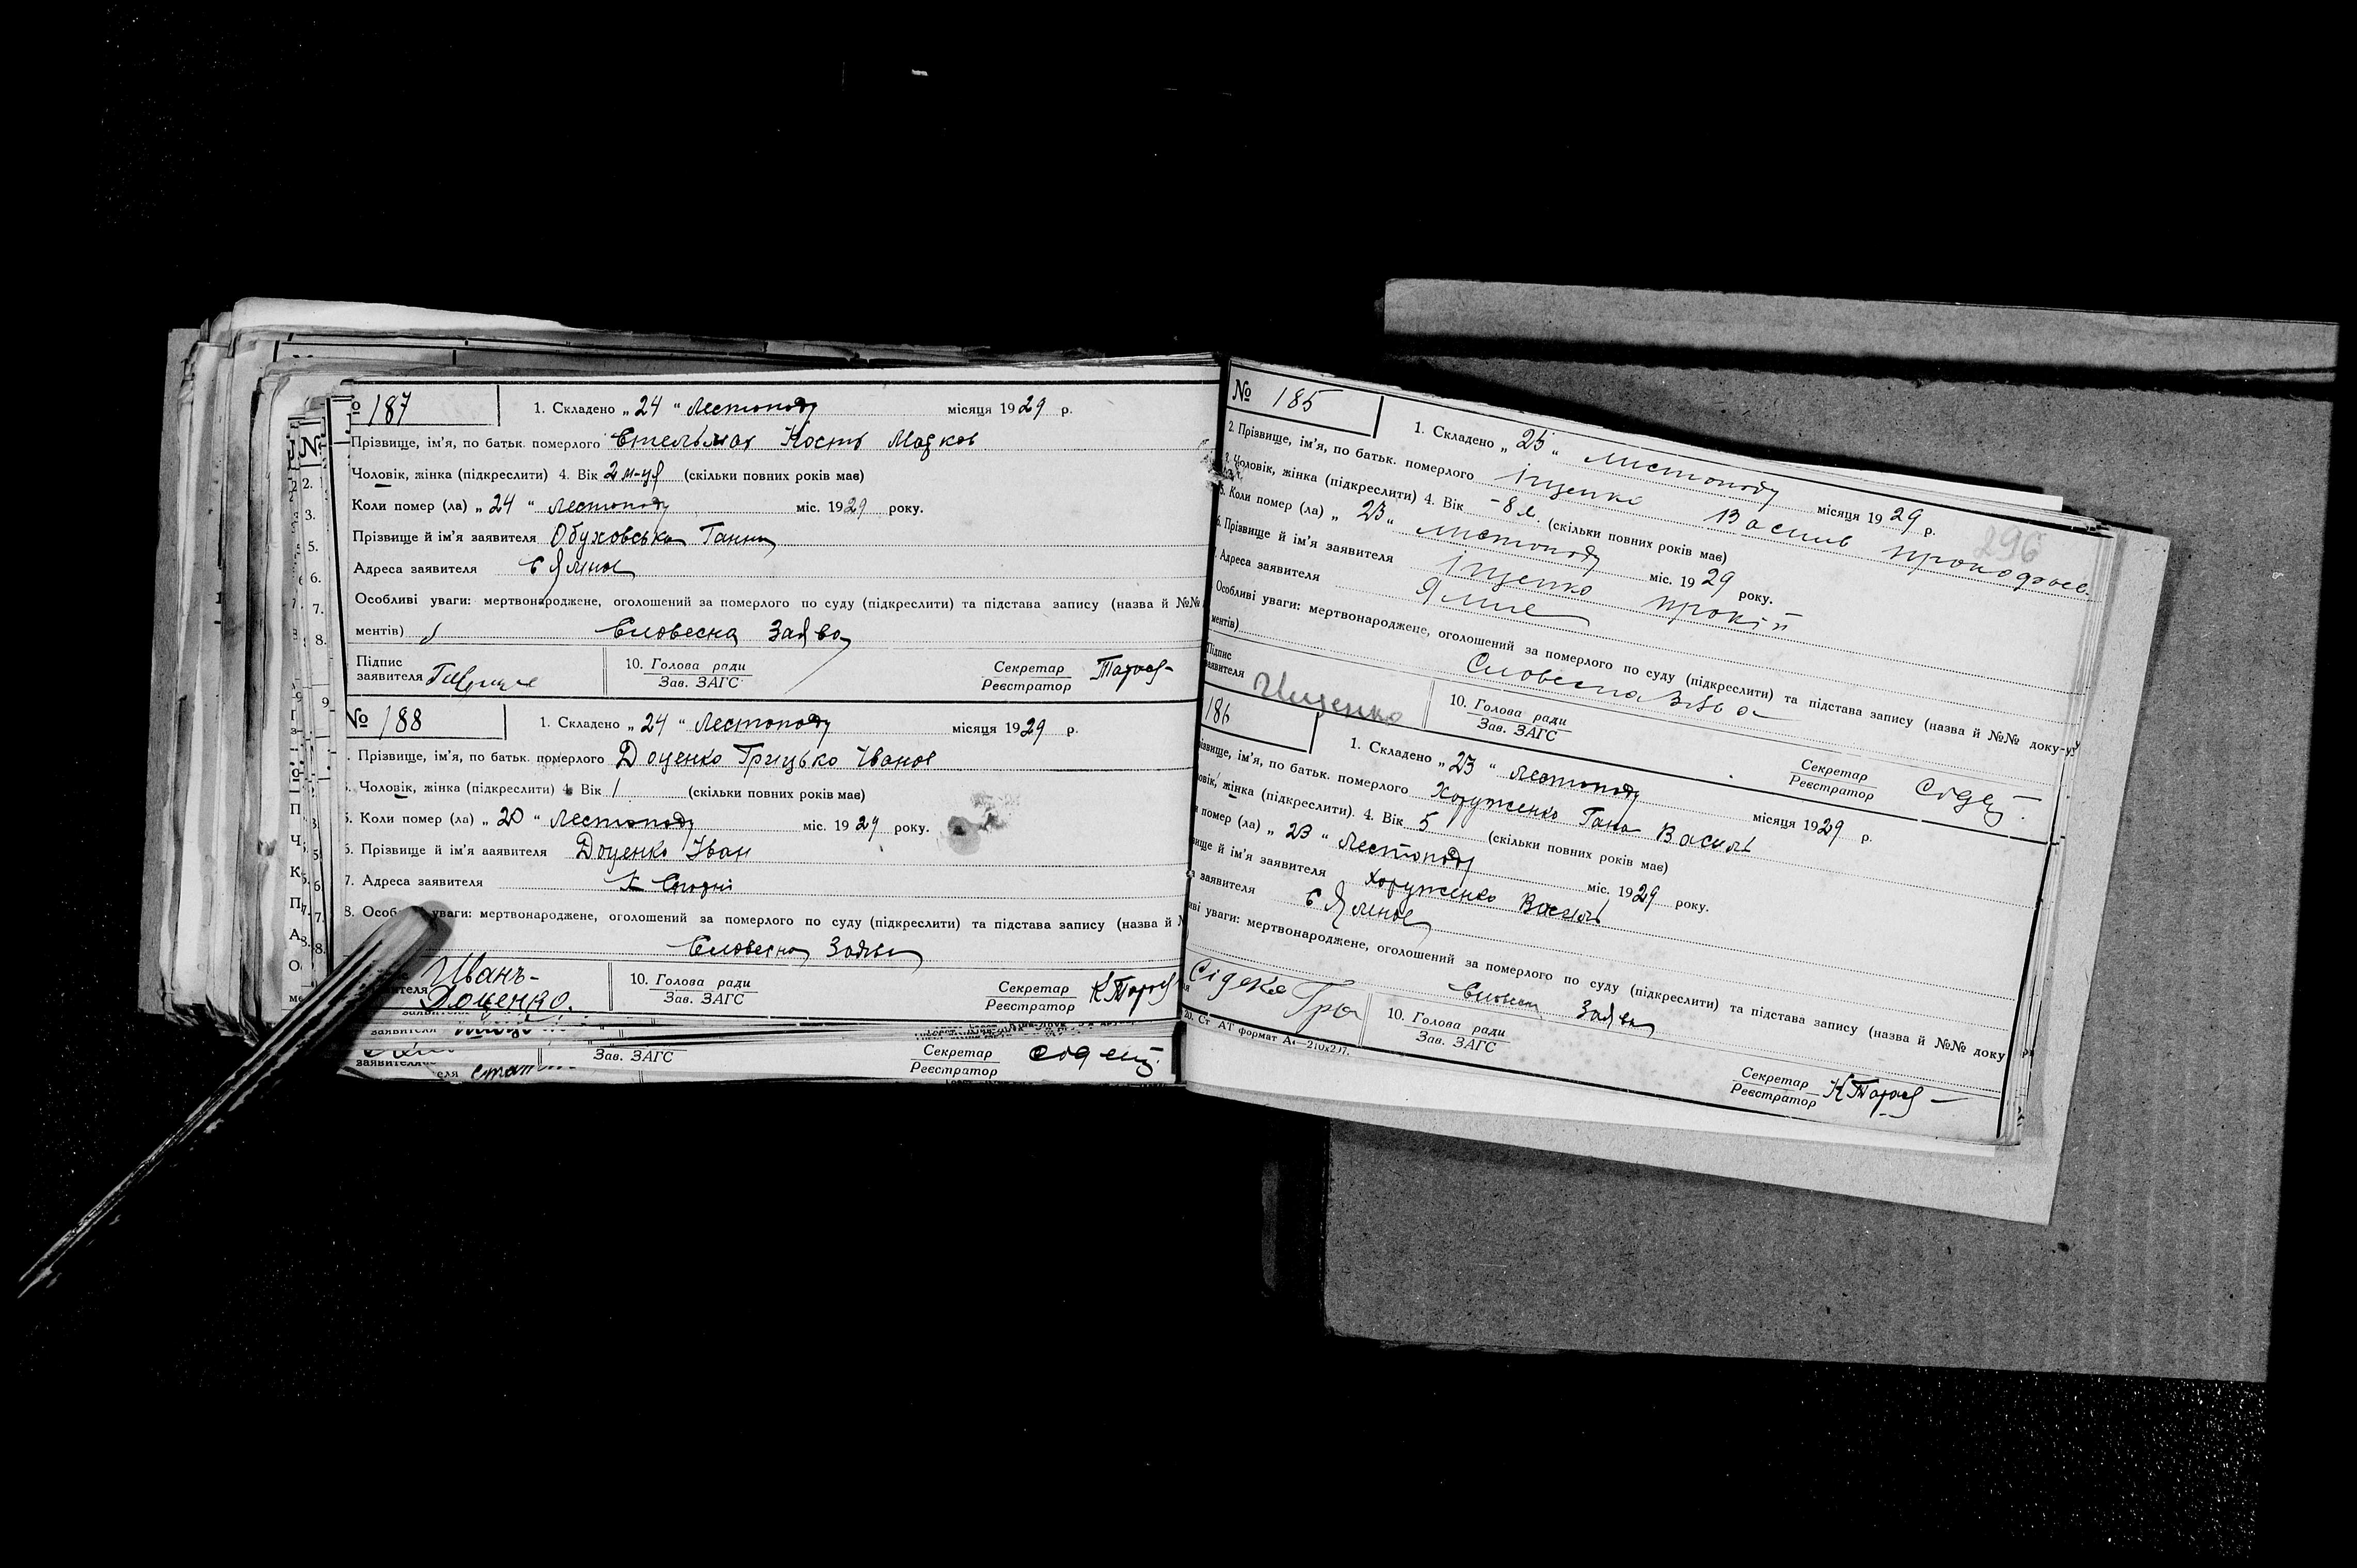 № 187 1. Складено „ 24 “ Лестопаду місяця 1929 р.
Прізвище, ім'я, по батьк. померлого Стельмах Кость Марков
Чоловік, жінка (підкреслити) 4. Вік 2 м-ця (скільки повних років має)
Коли помер (ла) „ 24 “ Лестопаду міс. 1929 року.
Прізвище й ім'я заявителя Обуховська Ганна
Адреса заявителя с Ялиное
Особливі уваги: мертвонароджене, оголошений за померлого по суду (підкреслити) та підстава запису (назва й №№
ментів) Словесна Заява
Підпис заявителя 10. Голова ради Зав. ЗАГС Секретар Реєстратор
№ 188 1. Складено „ 24 “ Лестопаду місяця 1929 р.
Прізвище, ім'я, по батьк. померлого Доценко Грицько Іванов
Чоловік, жінка (підкреслити) 4. Вік 1 (скільки повних років має)
5. Коли помер (ла) „ 20 “ Лестопаду міс. 1929 року.
6. Прізвище й ім'я заявителя Доценко Іван
7. Адреса заявителя
8. Особ уваги: мертвонароджене, оголошений за померлого по суду (підкреслити) та підстава запису (назва й
Словесна Заява
Иванъ Доценко. 10. Голова ради Зав. ЗАГС Секретар Реєстратор
заявителя
Зав. ЗАГС Секретар Реєстратор
№ 185 1. Складено „ 25 “ листопаду місяця 1929 р.
296
2. Прізвище, ім'я, по батьк. померлого Іщенко Василь
3. Чоловік, жінка (підкреслити) 4. Вік - 8 л. (скільки повних років має)
5. Коли помер (ла) „ 23 “ листопаду міс. 1929 року.
6. Прізвище й ім'я заявителя Іщенко Прокіп
Адреса заявителя Ялине
Особливі уваги: мертвонароджене, оголошений за померлого по суду (підкреслити) та підстава запису (назва й №№ доку-
ментів) Словесна заява
Підпис заявителя Ищенко 10. Голова ради Зав. ЗАГС Секретар Реєстратор
186 1. Складено „ 23 “ Лестопаду місяця 1929 р.
Прізвище, ім'я, по батьк. померлого Хоруженко Гана Василь
жінка (підкреслити). 4. Вік 5 (скільки повних років має)
помер (ла) „ 23 “ Лестопаду міс. 1929 року.
й ім'я заявителя Хоруженко Василь
заявителя с Ялиное
уваги: мертвонароджене, оголошений за померлого по суду (підкреслити) та підстава запису (назва й №№ доку
Словесна Заява
10. Голова ради Зав. ЗАГС Секретар Реєстратор
Ст АТ формат А4—210x297.